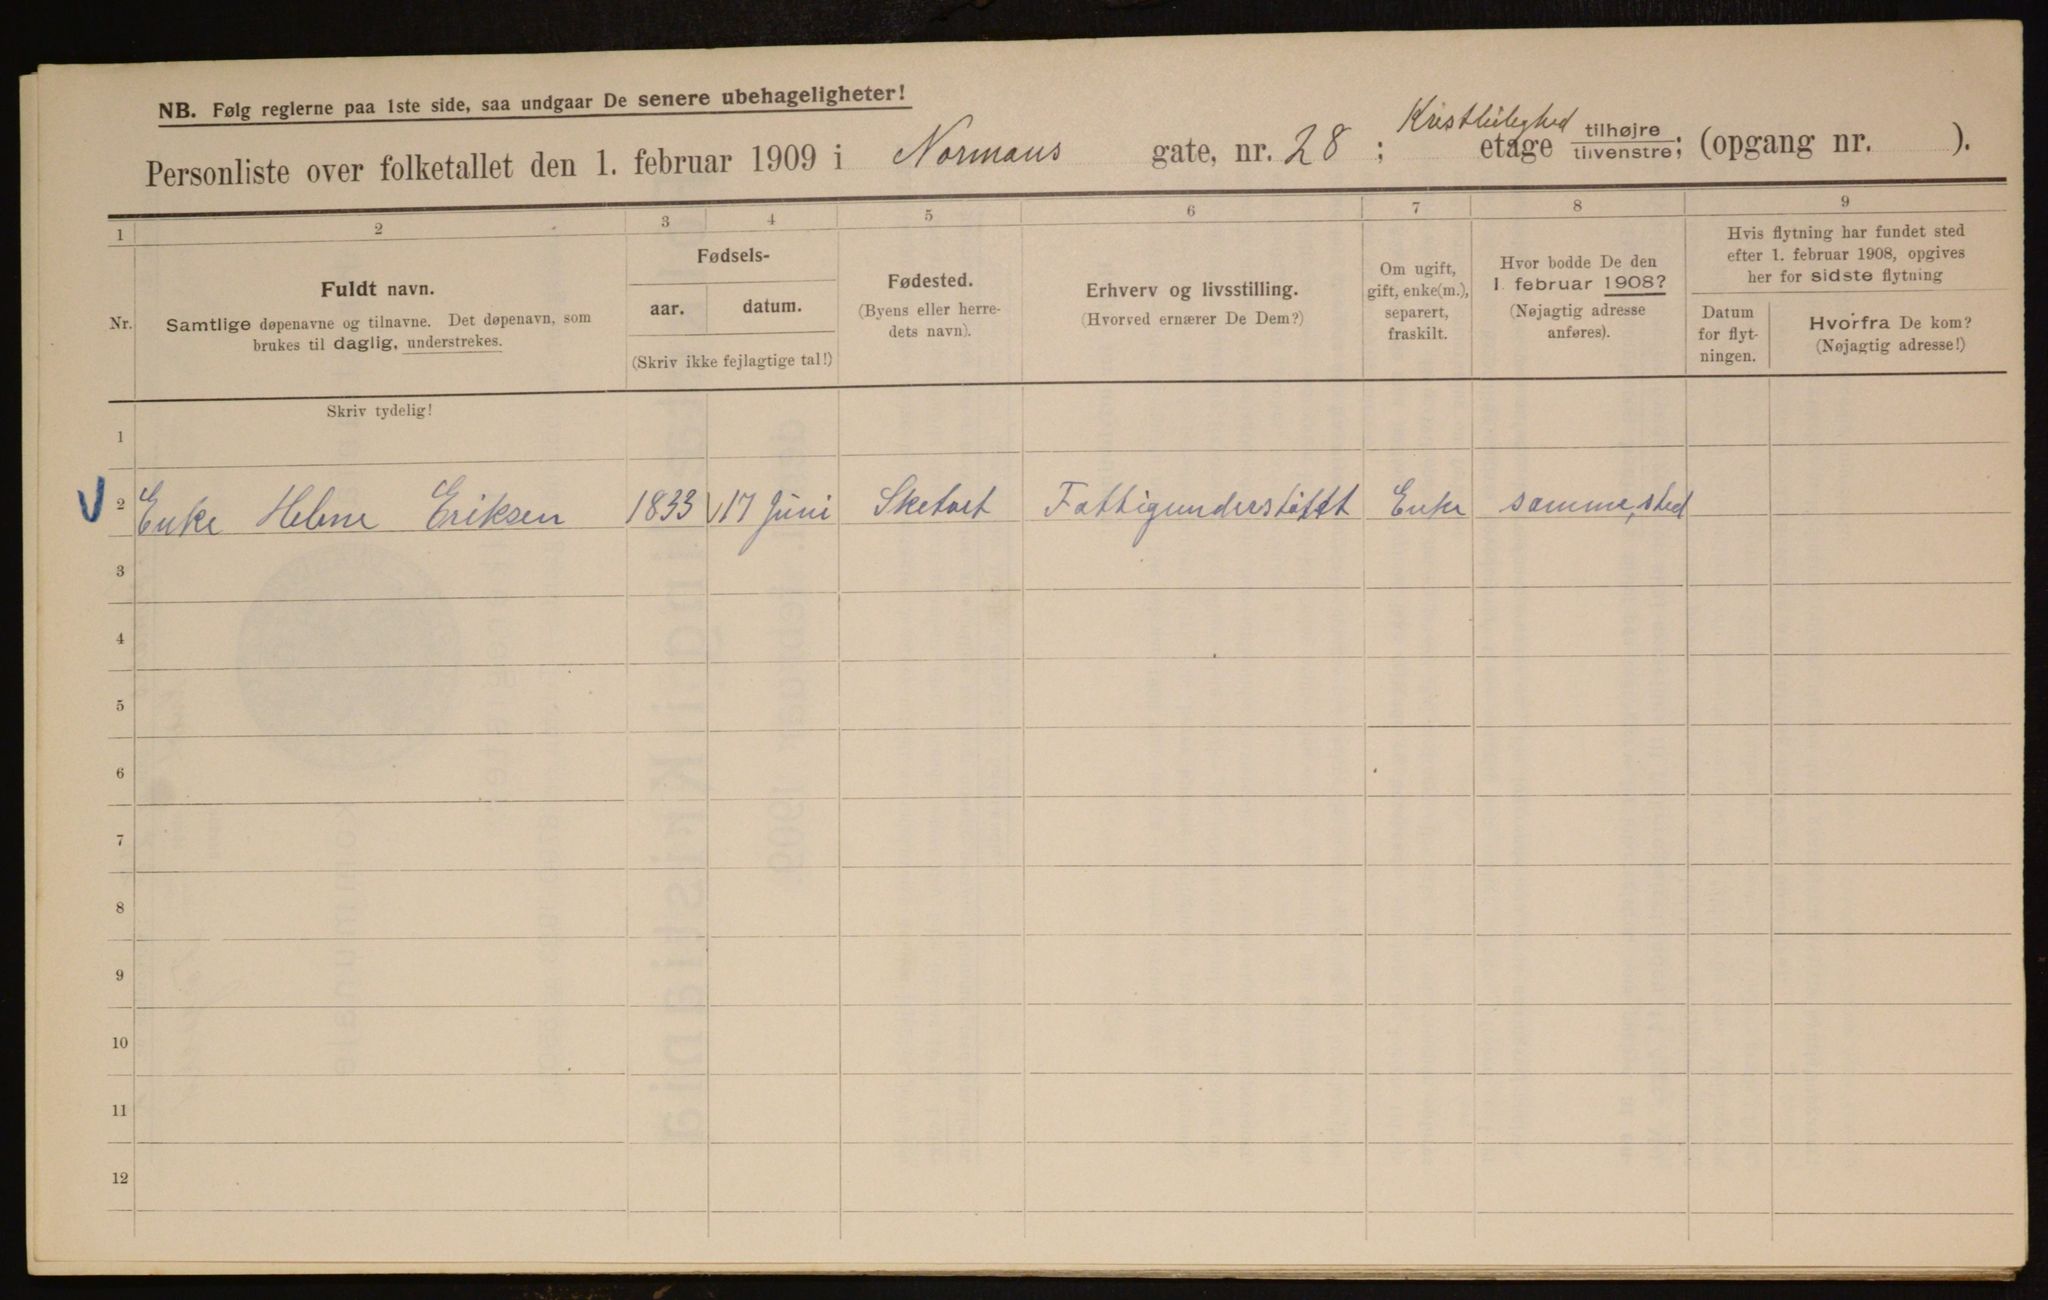 NB. Følg reglerne paa 1ste side, saa undgaar De senere ubehageligheter!
Personliste over folketallet den 1. februar 1909 i Normans gate, nr. 28 ; etage tilhøjre tilvenstre; (opgang nr. ).
1 2 3 4 5 6 7 8 9
Nr.
Fuldt navn.
Samtlige døpenavne og tilnavne. Det døpenavn, som
brukes til daglig, understrekes.
Skriv tydelig!
Fødsels-
aar. datum.
(Skriv ikke fejlagtige tal!)
Fødested.
(Byens eller herre-
dets navn).
Erhverv og livsstilling.
(Hvorved ernærer De Dem?)
Om ugift,
gift, enke(m.),
separert,
fraskilt.
Hvor bodde De den
1. februar 1908?
(Nøjagtig adresse
anføres).
Hvis flytning har fundet sted
efter 1. februar 1908, opgives
her for sidste flytning
Datum
for flyt-
ningen.
Hvorfra De kom?
(Nøjagtig adresse!)
1
2 Enke Helene Eriksen 1833 17 Juni Fattigunderstøttt Enke samme sted
3
4
5
6
7
8
9
10
11
12